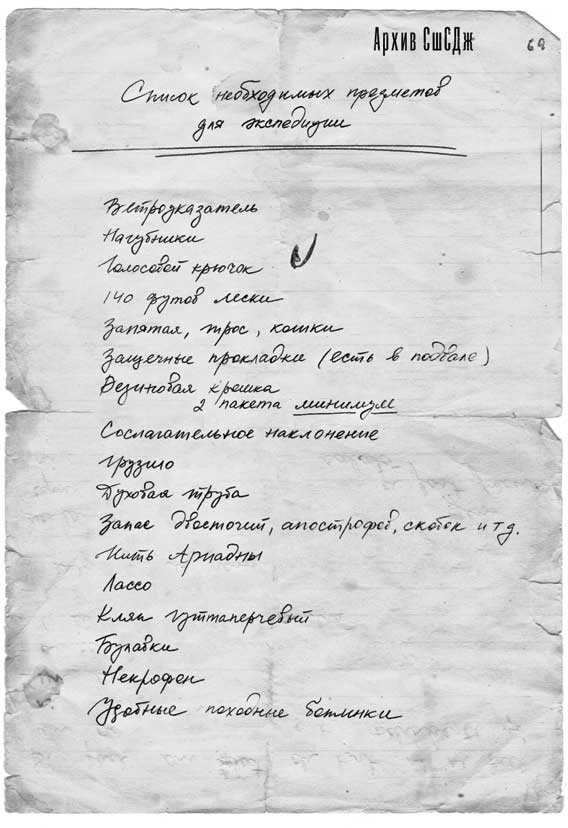 Архив СшСДж
69
Список необходимых предметов
для экспедиции
Ветроуказатель
Нагубники
Голосовой крючок
140 футов лески
Запятая, трос, кошки
Защечные прокладки (есть в подвале)
Резиновая крошка
2 пакета минимум
Сослагательное наклонение
Грузило
Духовая труба
Запас двоеточий, апострофов, скобок и т д.
Нить Ариадны
Лассо
Кляп гуттаперчевый
Булавки
Некрофон
Удобные походные ботинки